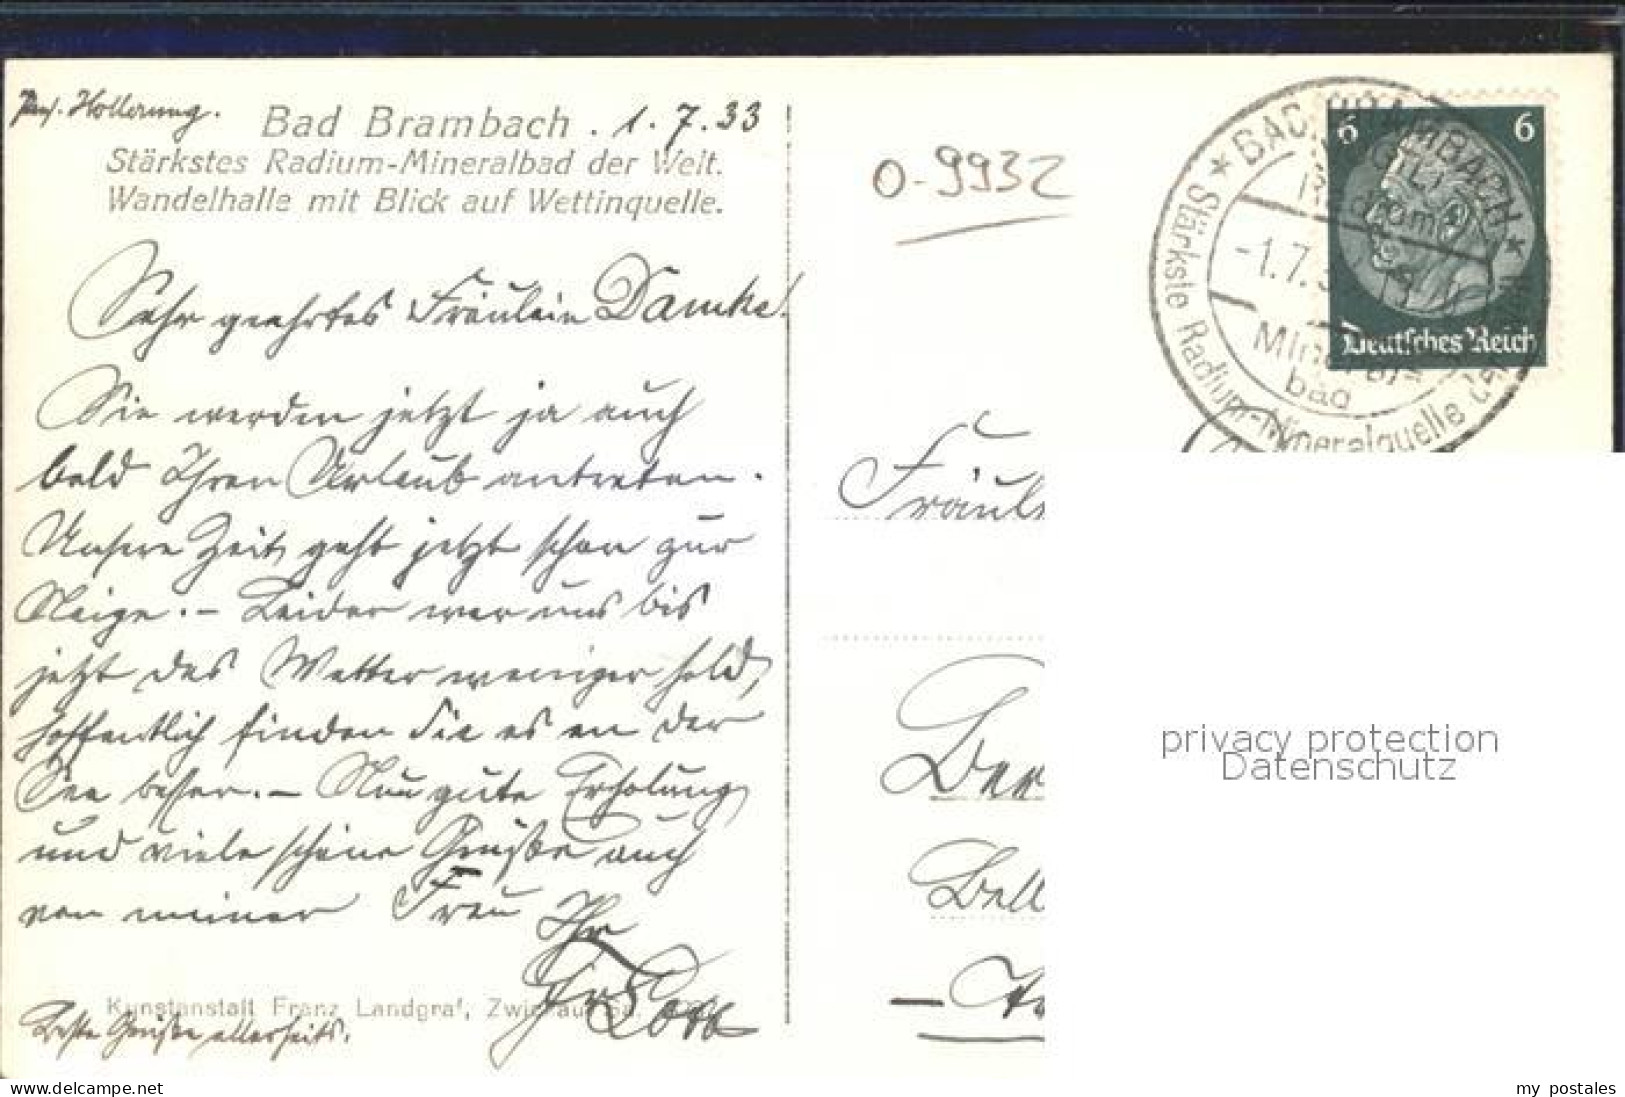 Hollerung.
Bad Brambach. 1.7.33
Stärkstes Radium-Mineralbad der Welt.
Wandelhalle mit Blick auf Wettinquelle.
Sehr geehrtes Fräulein Damke!
Sie werden jetzt ja auch
bald Ihren Urlaub antreten.
Unsere Zeit geht jetzt schon zur
Neige. – Leider war uns bis
jetzt das Wetter weniger hold,
hoffentlich finden Sie es an der
See besser. – Nun gute Erholung
und viele schöne Grüße auch
von meiner Frau
Ihr
Kunstanstalt Franz Landgraf, Zwickau Sa.
Beste Grüße allerseits.
0-9932
★ BAD BRAMBACH ★
(VOGTL)
-1.7.3
Mineral-
bad
Stärkste Radium-Mineralquelle der
6 6
Deutsches Reich
Fräul
Ber
Bell
privacy protection
Datenschutz
https://www.delcampe.net
my postales